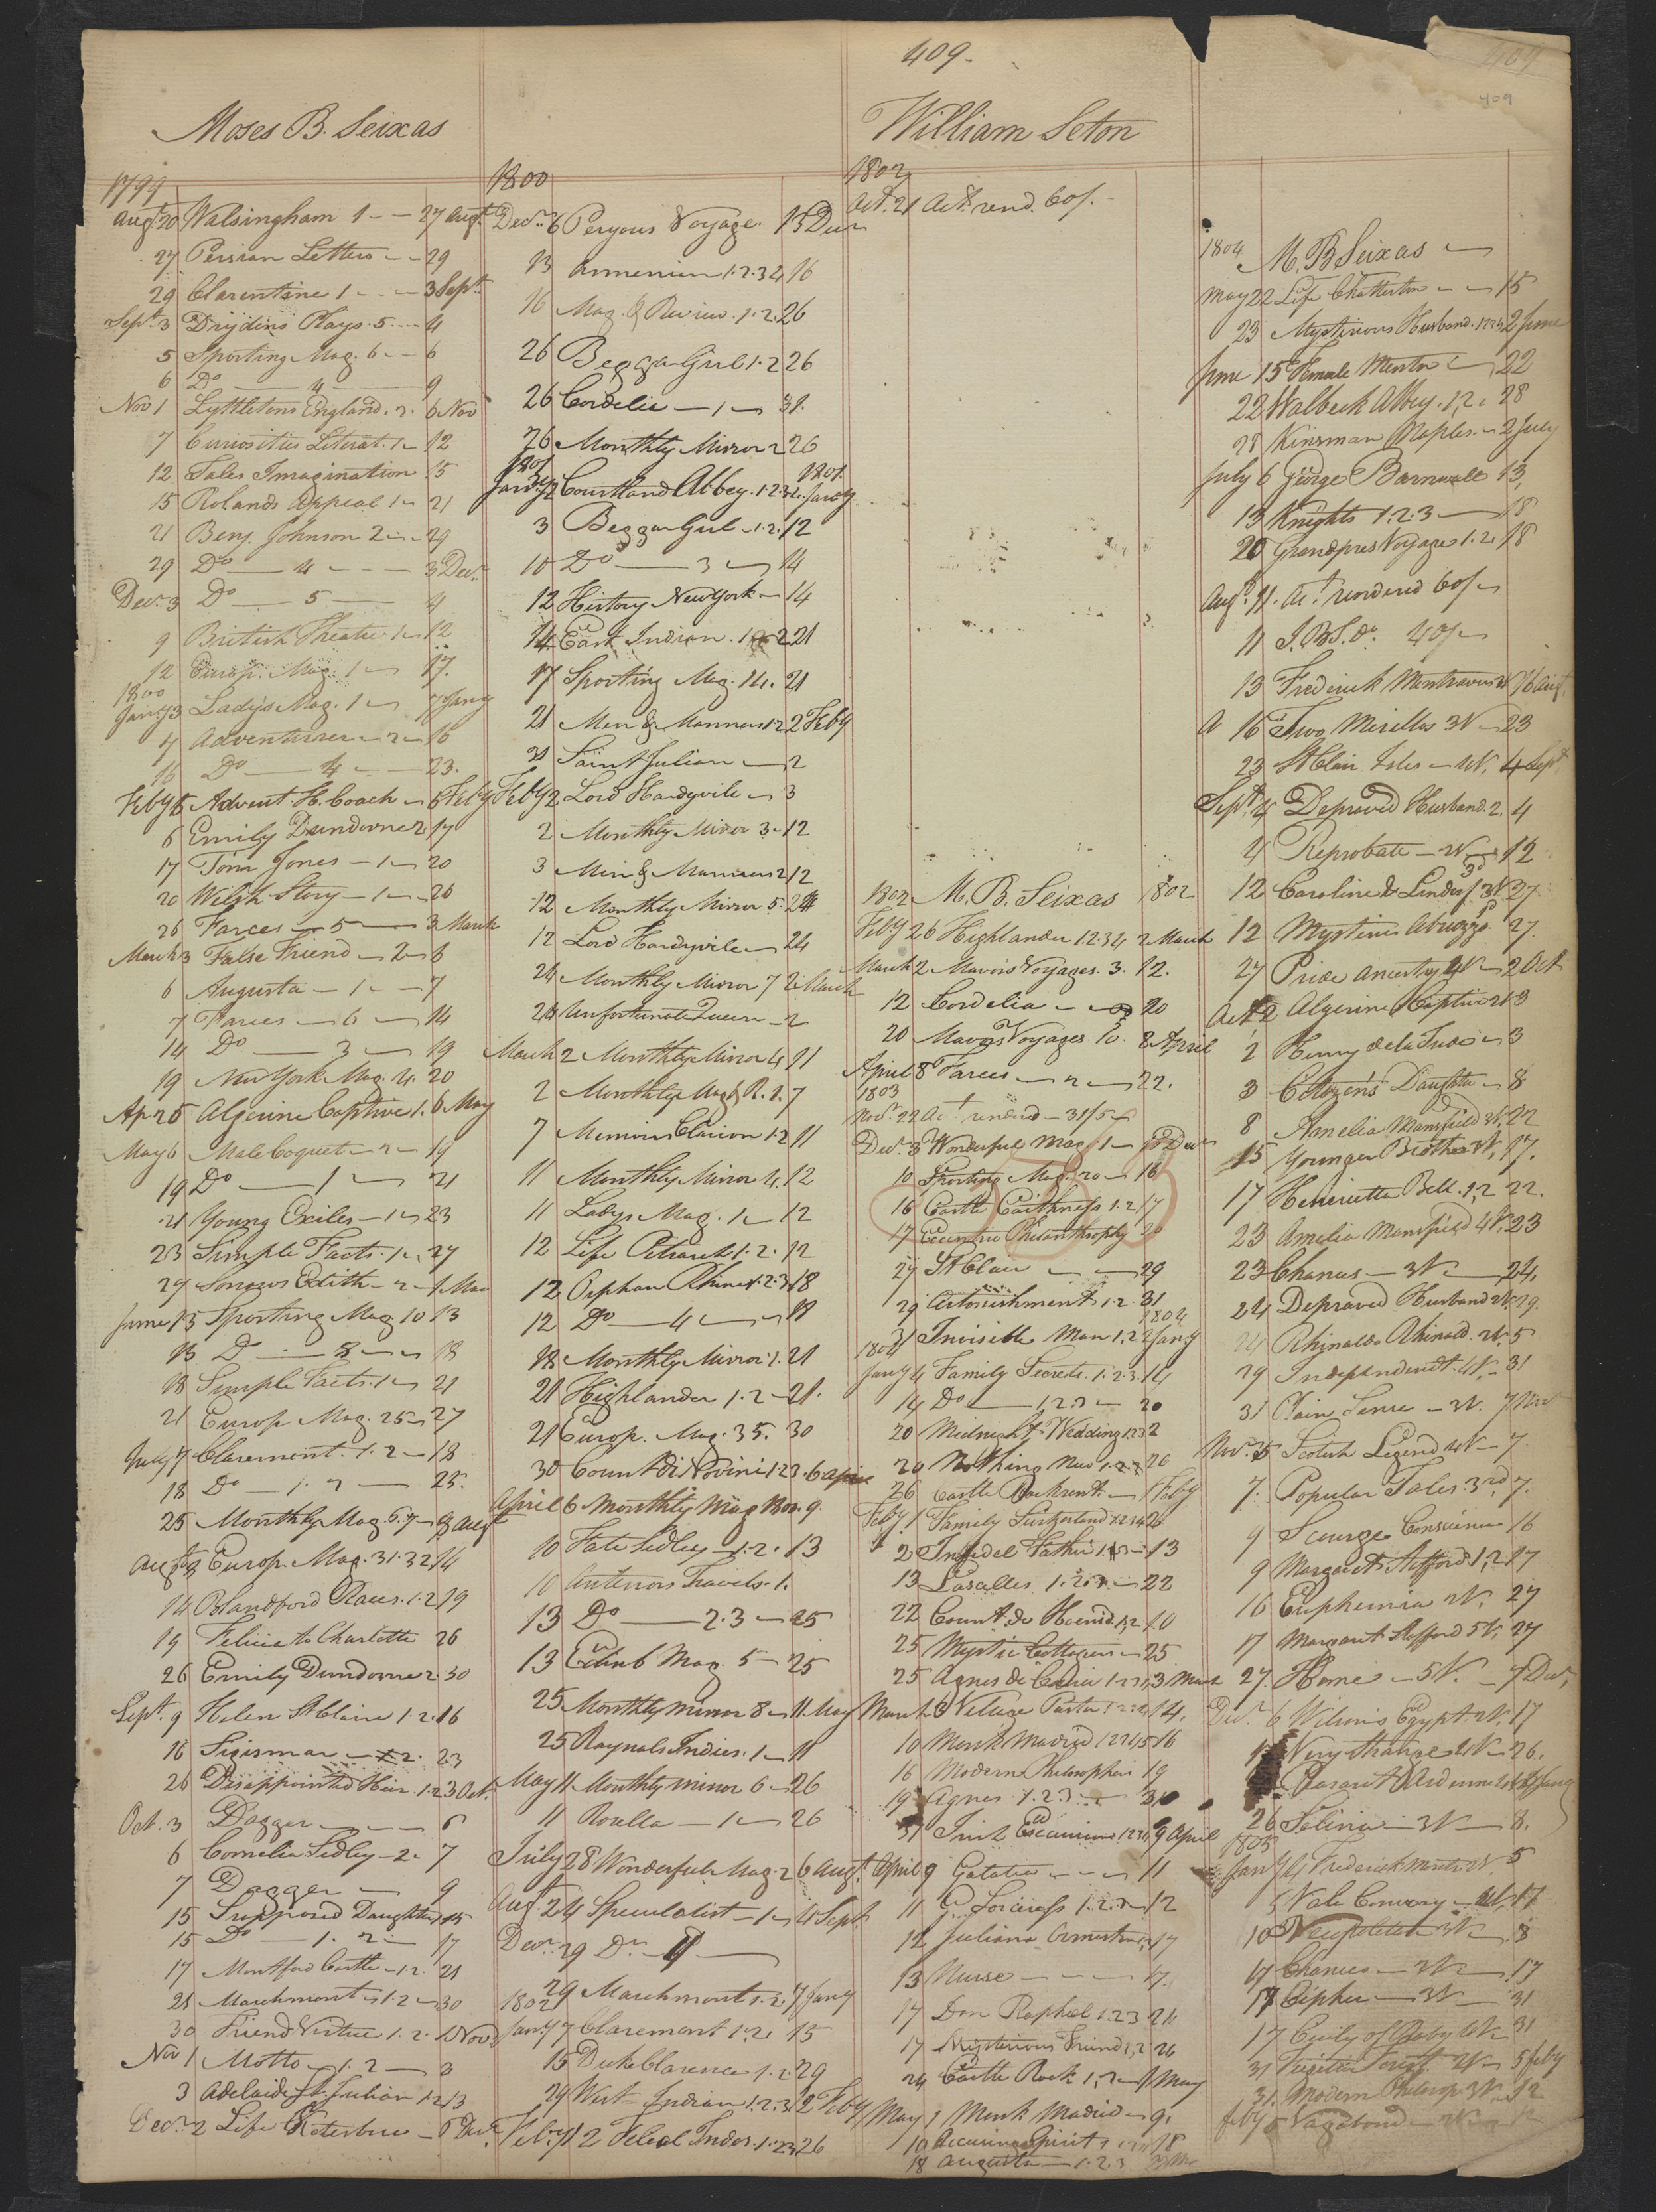 409.
409
409
Moses B. Seixas
1799
Augt 20 Walsingham 1 — — 27 Augt
27 Persian Letters — — 29
29 Clarentine 1 — — 3 Sept
Sept. 3 Drydens Plays. 5 — 4
5 Sporting Mag. 6 — — 6
6 Do — 4 — 9
Nov 1 Lyttletons England. 2. 6 Nov
7 Curiosities Literat. 1 — 12
12 Tales Imagination 15
15 Rolands Appeal 1 — 21
21 Benj. Johnson 2 — 29
29 Do — 4 — — 3 Decr
Decr. 3 Do — 5 — 4
9 British Theatre 1 — 12
12 Europ. Mag. 1 — 17.
1800
Jany 3 Lady's Mag. 1 — 7 Jany
7 Adventurer — 2 — 16
16 Do — 4 — — 23.
Feby 5 Advent. H. Coach — 6 Feby
6 Emily Dundorne 2 17
17 Tom Jones — 1 — 20
20 Welsh Story — 1 — 26
26 Farces — 5 — 3 March
March 3 False Friend — 2 — 6
6 Augusta — 1 — 7
7 Farces — 6 — 14
14 Do — 3 — 19
19 New York Mag. 4. 20
Ap 25 Algerine Captive 1. 6 May
May 6 Male Coquet — 2 — 19
19 Do — 1 — 21
21 Young Exiles — 1 — 23
23 Simple Facts. 1 — 27
29 Edith — 2 —
June 13 Sporting Mag 10 13
13 Do — 8 — 18
18 Simple Facts. 1 — 21
21 Europ Mag. 25 — 27
July 7 Claremont. 1. 2 — 18
18 Do — 1. 2 — 25.
25 Monthly Mag. 6. 7 — 8 Augt
Augt 8 Europ. Mag. 31. 32 14
14 Blandford Races. 1. 2 19
19 Felicia to Charlotte 26
26 Emily Dundorne 2. 30
Sept. 9 Helen St Claire 1. 2. 16
16 Sigismar — 2. 23
26 Disappointed Heir. 1. 2 3 Oct.
Oct. 3 Dagger — — 6
6 Cornelia Sedley — 2. 7
7 Dagger — 9
15 Supposed Daughter 15
15 Do — 1. 2 — 17
17 Montford Castle — 1. 2. 21
21 Marchmont — 1. 2 — 30
30 Friend Virtue 1. 2. 1 Nov
Nov 1 Motto — 1. 2 — 3
3 Adelaide St. Julian 1. 2 13
Decr. 2 Life Kotzebue — 6 Decr
1800
Decr. 6 Voyage. 13 Decr
13 Armenian 1. 2. 3 4 16
16 Mag. & Review. 1. 2. 26
26 Beggar Girl 1. 2 26
26 Cordelia — 1 — 31.
26 Monthly Mirror 2 26
1801 1801
Jany 2 Courtland Abbey. 1. 2. 3 2. Jany
3 Beggar Girl — 1. 2. 12
10 Do — 3 — 14
12 History New York — 14
14 East Indian. 1 2 21
17 Sporting Mag. 14. 21
21 Men & Manners 1. 2 2 Feby
21 Saint Julian — 2
Feby 2 Lord Hardyvile — 3
2 Monthly Mirror 3 — 12
3 Men & Manners 2 12
12 Monthly Mirror 5. 24
12 Lord Hardyvile — 24
24 Monthly Mirror 7 2 March
24 Unfortunate Queen — 2
March 2 Monthly Mirror 4 11
2 Monthly Mag & R. 1. 7
7 Memoirs Clarion 1. 2 11
11 Monthly Mirror 4. 12
11 Ladys Mag. 1 — 12
12 Life Petrarch 1. 2. 12
12 Orphan Rhine 1. 2. 3 18
12 Do — 4 — 18
18 Monthly Mirror. 1. 21
21 Highlander 1. 2 — 21.
21 Europ. Mag. 35. 30
30 Count di Novini 1 2 3. 6 April
April 6 Monthly Mag 9.
10 Fate Sedley — 1. 2. 13
10 Antenors Travels. 1.
13 Do — 2. 3 — 25
13 Edinb Mag. 5 — 25
25 Monthly mirror 8 — 11 May
25 Raynals Indies. 1 — 11
May 11 Monthly mirror 6 — 26
11 Rosella — 1 — 26
July 28 Wonderful Mag. 2 6 Augt
Augt. 24 Speculatist — 1 — 4 Sept
Decr. 29 Do —
29 Marchmont 1. 2. 7 Jany
1802
Jany 7 Claremont 1. 2. 15
15 Duke Clarence 1. 2. 29
29 West Indian 1. 2. 3 2 Feby
Feby 12 1. 2 3 26
William Seton
1802
Oct. 21 Acct. rend. 60/.
1802 M. B. Seixas 1802
Feby 26 Highlander 1. 2. 3 4 2 March
March 2 Mavors Voyages. 3. 12.
12 Cordelia — 20
20 Mavors Voyages. 10. 2 April
April 8 Farces — 2 — 22.
1803
Nov. 22 Act rend — 31/5
Decr. 3 Wonderful Mag. 1 — 10 Decr
10 Sporting Mag. 20 — 16
16 Castle Caithness 1. 2 17
17 Eccentric Philanthropy 20
27 St Clair — — 29
29 Astonishment 1. 2. 31
1804
31 Invisible Man 1. 2 2 Jany
1804
Jany 4 Family Secrets. 1. 2. 3. 14
14 Do — 1. 2. 3 — 20
20 Midnight Wedding 1. 2 3 2
20 Nothing New 1. 2. 3 26
26 Castle Rackrent — 1 Feby
Feby 1 Family Switzerland 1 2 3 4 2
2 Infidel Father 1. 2 3 — 13
13 Lasalles 1. 2. 3. — 22
22 Count de Hoensd 1, 2 10
25 Mystic Cottagers — 25
25 Agnes de Castro 1 2 3, 3 March
March 3 Village Pastor 1 2 3 14.
10 Monk Madrid 1 2 3 4, 5 16
16 Modern Philosophers 19
19 Agnes 1. 2. 3 — 31
31 Irish Excursions 1 2 3 4, 9 April
April 9 Galatea — — 11
11 Sorceress 1. 2. 3 — 12
12 Juliana Ormeston 17
13 Nurse — — — 17
17 Don Raphael 1. 2 3 24
17 Mysterious Friend 1, 2 26
24 Castle Rock 1, 2 — 1 May
May 1 Monk Madrid — 9.
10 Accusing Spirit 18
18 Augusta — 1. 2. 3
1804 M. B Seixas —
May 22 Life Chatterton — — 15
23 Mysterious Husband. 1 2 3 4 2 June
June 15 Female Mentor — 22
22 Walbeck Abbey. 1, 2. 28
28 Kinsman Naples. — 2 July
July 6 George Barnwell 13,
13 Knights 1. 2. 3 — 18
20 Grandpres Voyages 1. 2. 18
Augt. 11. Act rendered 60/ —
11 J. B. S. Do. 40/ —
13 Frederick Montravers 16 Augt.
A 16 Two Mirellos 3 V — 23
23 St Clair Isles — 4 V, 4 Sept.
Sept 4 Depraved Husband. 2. 4
4 Reprobate — 2 V — 12
12 Caroline & Lindorf 3d V 27.
12 Mysteries Abruzzo 27.
27 Pride Ancestry 4 V — 2 Oct
Oct 2 Algerine Captive 2 V 3
2 Henry de la Tudor — 3
3 Citizens Daughter — 8
8 Amelia Mansfield 3 V, 22
15 Younger Brother 2 V, 17.
17 Henrietta Bell. 1, 2 22.
23 Amelia Mansfield 4 V. 23
23 Chances — 3 V — 24,
24 Depraved Husband 2 V, 29.
24 Rhinaldo Rhinald. 2 V. 5
29 Independent. 4 V, — 31
31 Plain Sense — 3 V. 7 Nov
Nov. 5 Scotish Legend 4 V — 7.
7. Popular Tales. 3rd. 7.
9 Scurge Conscience 16
9 Margaret Stafford 1, 2 17
16 Euphemia 2 V, 27
17 Margaret Stafford 5 V, 27
27. Home — 5 V. — 7 Decr,
Decr 6 Wilsons Egypt. 2 V, 17
Very Strange 4 V — 26.
Peasant Ardennes Jany
26 Selina — 3 V — 8.
1805
Jany 4 Frederick Montr. 2 V. 5
5 Vale Conway — 4 V, 17
10 Neapolitan 3 V — 8
17 Chances — 2 V — 17
17 Cipher — 3 V — 31
17 Cecily of Raby 4 V. 31
31 5 Feby
31. Modern Philosop. 3 V. 12
Feby 5 Vagabond — 2 V —